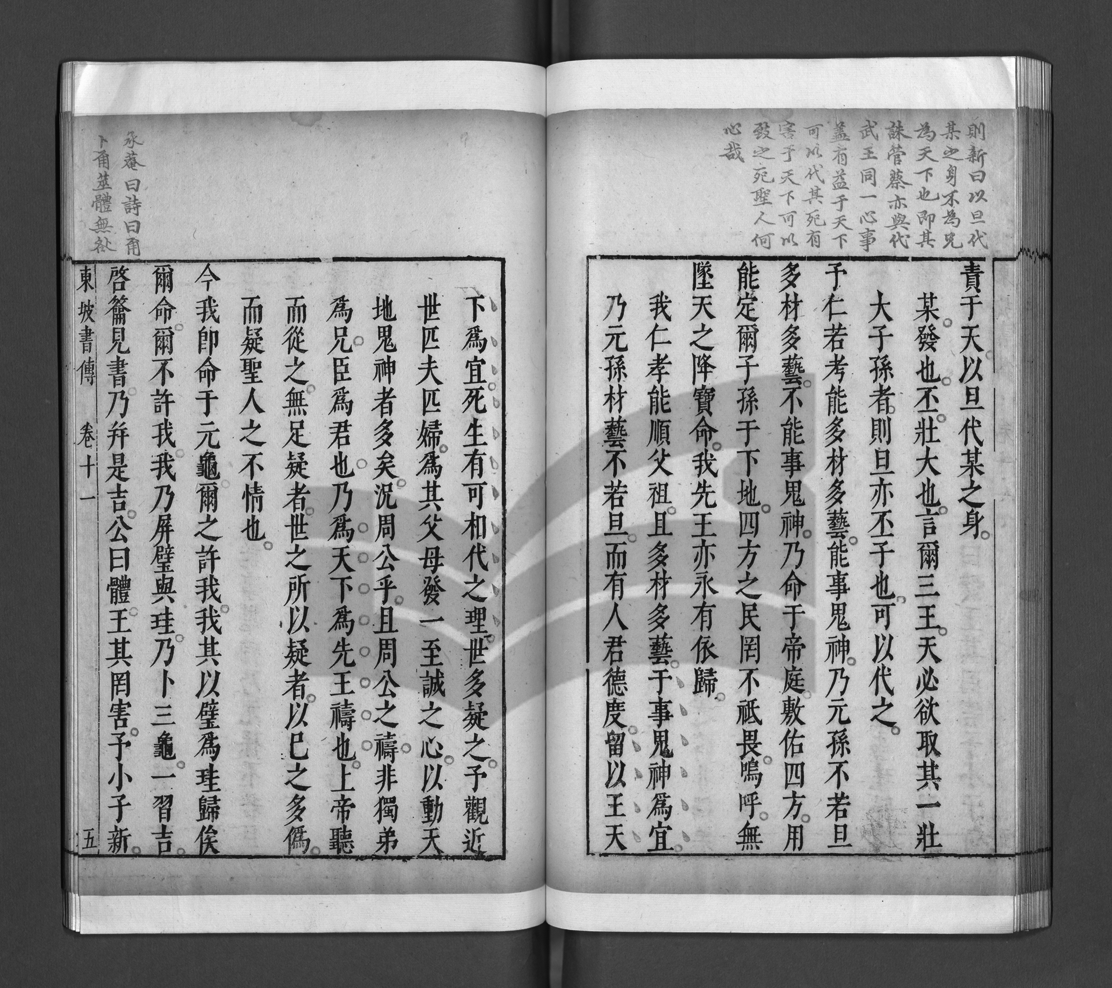 則新曰以旦代
某之身不為兄
為天下也即其
誅管蔡亦與代
武王同一心事
蓋有益于天下
可以代其死有
害于天下可以
致之死聖人何
心哉
責于天以旦代某之身
某發也丕壯大也言爾三王天必欲取其一壯
大子孫者則旦亦丕子也可以代之
予仁若考能多材多藝能事鬼神乃元孫不若旦
多材多藝不能事鬼神乃命于帝庭敷佑四方用
能定爾子孫于下地四方之民罔不祗畏嗚呼無
墜天之降寶命我先王亦永有依歸
我仁孝能順父祖且多材多藝于事鬼神爲宜
乃元孫材藝不若旦而有人君德度留以王天
永菴曰詩曰爾
卜爾筮體無咎
下爲宜死生有可相代之理世多疑之予觀近
世匹夫匹婦爲其父母發一至誠之心以動天
地鬼神者多矣況周公乎且周公之禱非獨弟
爲兄臣爲君也乃爲天下爲先王禱也上帝聽
而從之無足疑者世之所以疑者以巳之多僞
而疑聖人之不情也
今我卽命于元龜爾之許我我其以璧爲珪歸俟
爾命爾不許我我乃屏璧與珪乃卜三龜一習吉
啓籥見書乃幷是吉公曰體王其罔害予小子新
東坡書傳 卷十一 五